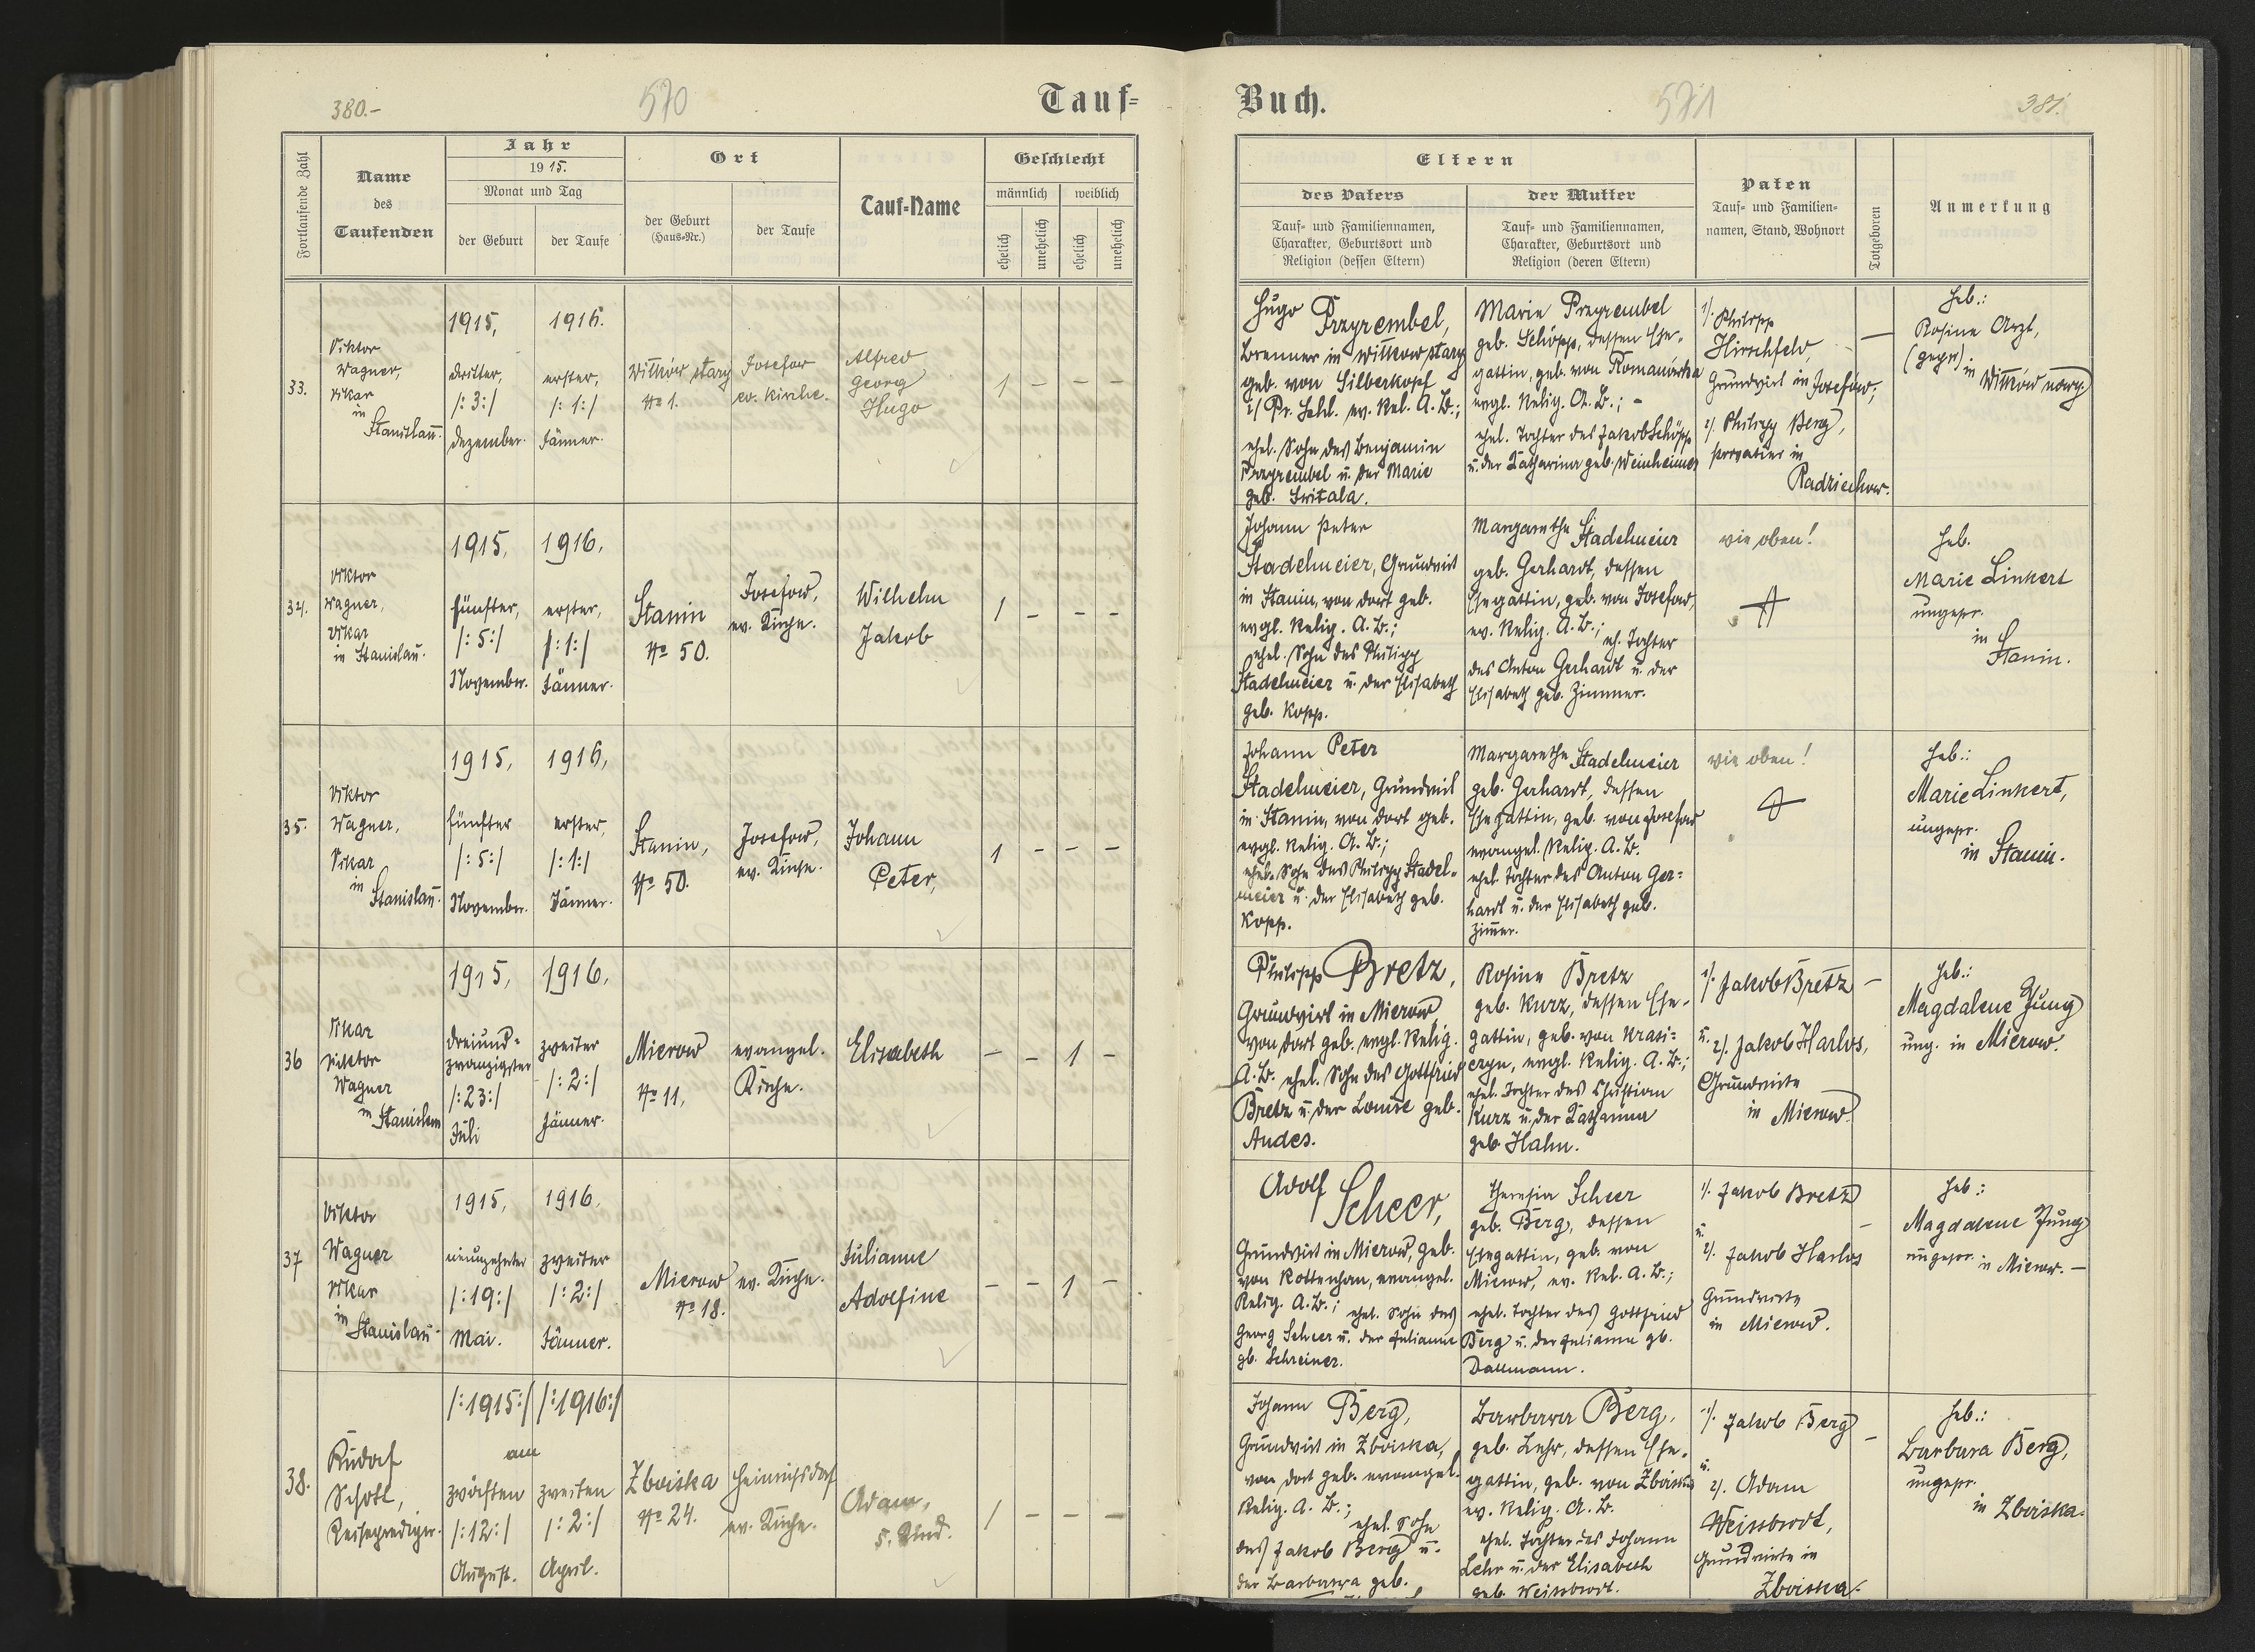 380.-
570
Tauf=
Fortlaufende Zahl
Name
des
Taufenden
Jahr
1915.
Monat und Tag
der Geburt
der Taufe
Ort
der Geburt
(Haus-Nr.)
der Taufe
Tauf-Name
Geschlecht
männlich
weiblich
ehelich
unehelich
ehelich
unehelich
33.
Viktor
Wagner,
Vikar
in
Stanislau.
1915,
dritter,
/:3:/
Dezember.
1916.
erster,
/:1:/
Jänner.
Witków stary
No 1.
Josefow
ev. Kirche.
Alfred
Georg
Hugo
1 - - -
34.
Viktor
Wagner,
Vikar
in Stanislau.
1915,
fünfter,
/:5:/
November.
1916,
erster,
/:1:/
Jänner.
Stanin
No 50.
Josefow,
ev. Kirche.
Wilhelm
Jakob
1 - - -
35.
Viktor
Wagner,
Vikar
in
Stanislau.
1915,
fünfter
/:5:/
November.
1916,
erster,
/:1:/
Jänner.
Stanin,
No 50.
Josefow,
ev. Kirche.
Johann
Peter,
1 - - -
36
Vikar
Viktor
Wagner
in Stanislau
1915,
dreiund=
zwanzigster
/:23:/
Juli
1916,
zweiter
/:2:/
Jänner.
Mierow
No 11,
evangel.
Kirche.
Elisabeth
- - 1 -
37
Viktor
Wagner
Vikar
in
Stanislau.
1915,
neunzehnter
/:19:/
Mai.
1916,
zweiter
/:2:/
Jänner.
Mierow
No 18.
ev. Kirche.
Julianne
Adolfine
- - 1 -
38.
Rudolf
Schott,
Reiseprediger.
/:1915:/ /:1916:/
am
zwölften
/:12:/
August.
zweiten
/:2:/
April.
Zboiska
No 24.
Heinrichsdorf
ev. Kirche.
Adam,
5. Kind.
1 - - -
Buch.
571
381.
Eltern
des Vaters
Tauf- und Familiennamen,
Charakter, Geburtsort und
Religion (dessen Eltern)
der Mutter
Tauf- und Familiennamen,
Charakter, Geburtsort und
Religion (deren Eltern)
Paten
Tauf- und Familien-
namen, Stand, Wohnort
Totgeboren
Anmerkung
Hugo Przyrembel,
Brenner in Witkow stary
geb. von Silberkopf
i/ Pr. Schl. ev. Rel. A.B.;
ehel. Sohn des Benjamin
Przyrembel u. der Marie
geb. Svitala.
Marie Przyrembel
geb. Schöpp, dessen Ehe-
gattin, geb. von Romanówka
evgl. Relig. A.B.; -
ehel. Tochter des Jakob Schöpp
u. der Katharina geb. Weinheimer
1/. Philipp
Hirschfeld,
Grundwirt in Josefów,
2/. Philipp Berg,
Privatier in
Radziechow.
—
Heb.:
Rosine Arzt,
(gepr) in
Witków nowy
Johann Peter
Stadelmeier, Grundwirt
in Stanin, von dort geb.
evgl. Relig. A.B.;
ehel. Sohn des Philipp
Stadelmeier u. der Elisabeth
geb. Kopp.
Margarethe Stadelmeier
geb. Gerhardt, dessen
Ehegattin, geb. von Josefow,
ev. Relig. A.B.; eh. Tochter
des Anton Gerhardt u. der
Elisabeth geb. Zimmer.
wie oben!
Heb.
Marie Linkert
ungepr.
in
Stanin.
Johann Peter
Stadelmeier, Grundwirt
in Stanin, von dort geb.
evgl. Relig. A.B.;
ehel. Sohn des Philipp Stadel-
meier u. der Elisabeth geb.
Kopp.
Margarethe Stadelmeier
geb. Gerhardt, dessen
Ehegattin, geb. von Josefow
evangel. Relig. A.B.
ehel. Tochter des Anton Ger=
hardt u. der Elisabeth geb.
Zim̄er.
wie oben!
Heb.:
Marie Linkert,
ungepr.
in Stanin.
Philipp Bretz,
Grundwirt in Mierow,
von dort geb. evgl. Relig.
A.B. ehel. Sohn des Gottfried
Bretz u. der Louise geb.
Andes.
Rosine Bretz
geb. Kurz, dessen Ehe-
gattin, geb. von Krasi=
czyn, evgl. Relig. A.B.;
ehel. Tochter des Christian
Kurz u. der Katharina
geb. Hahn.
1/. Jakob Bretz -
u.
2/. Jakob Harlos,
Grundwirte
in Mierow.
Heb.:
Magdalene Jung
ung. in Mierow.
Adolf
Scheer,
Grundwirt in Mierow, geb.
von Rottenhan, evangel.
Relig. A.B.; ehel. Sohn des
Georg Scheer u. der Julianne
gb. Schreiner.
Theresia Scheer
geb. Berg, dessen
Ehegattin, geb. von
Mierow, ev. Rel. A.B.;
ehel. Tochter des Gottfried
Berg u. der Julianna gb.
Dallmann.
1/. Jakob Bretz
u. -
2/. Jakob Harlos
Grundwirte
in Mierow.
Heb:
Magdalene Jung
ungepr. in Mierow. —
Johann Berg,
Grundwirt in Zboiska,
von dort geb. evangel.
Relig. A.B.;
ehel. Sohn
des Jakob Berg u.
der Barbara geb.
Barbara Berg,
geb. Lehr, dessen Ehe-
gattin, geb. von Zboiska
ev. Relig. A.B.
ehel. Tochter des Johann
Lehr u. der Elisabeth
geb. Weissbrodt.
1/. Jakob Berg -
u.
2/. Adam
Weissbrodt,
Grundwirte in
Zboiska.
Heb.:
Barbara Berg,
ungepr.
in Zboiska.